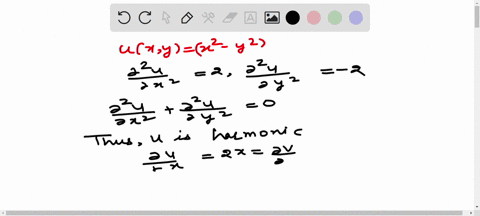 u(x,y)=(x²-y²)
∂²u/∂x² = 2, ∂²u/∂y² = -2
∂²u/∂x² + ∂²u/∂y² = 0
Thus, u is harmonic
∂u/∂x = 2x = ∂v/∂